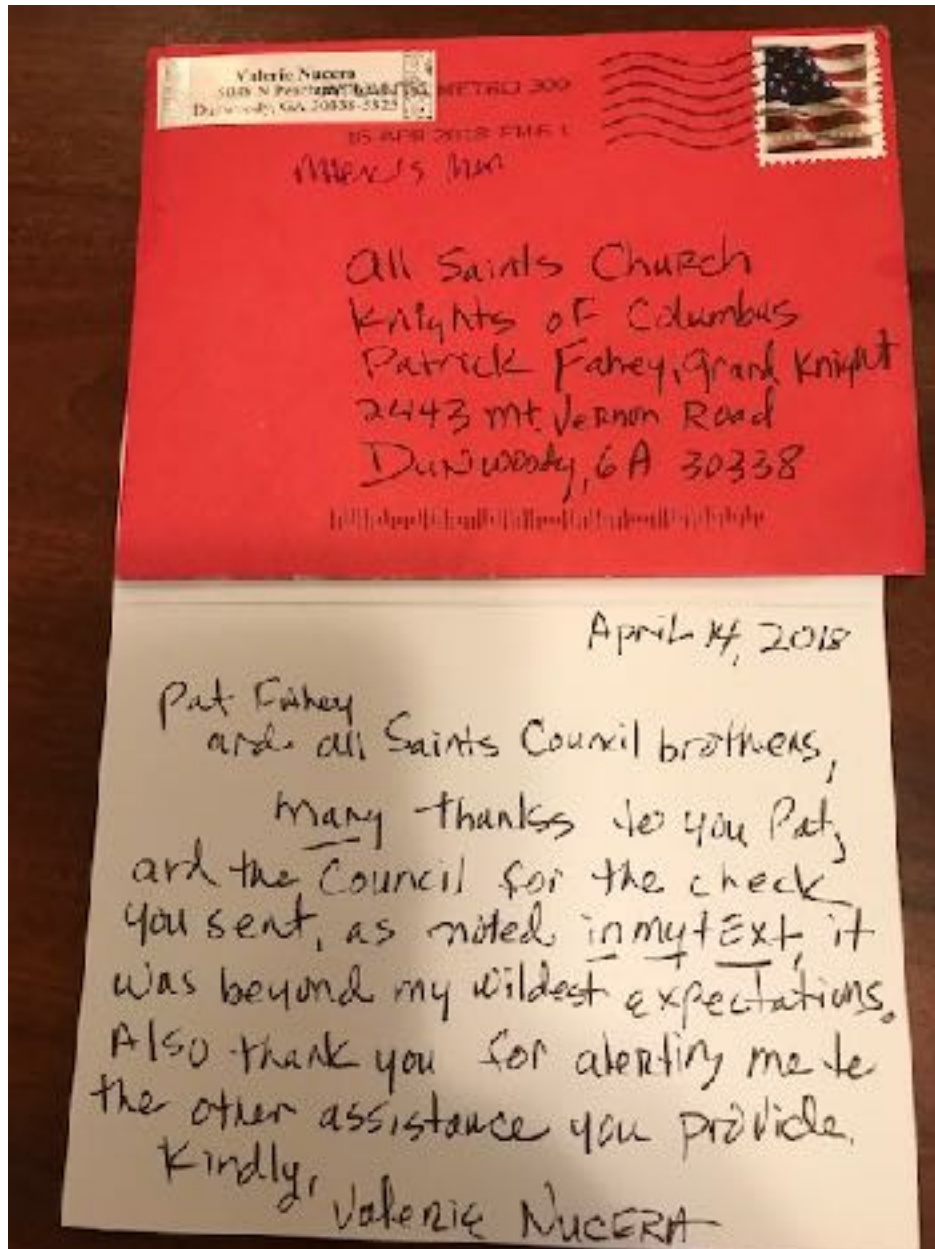 Valerie Nucera
Dunwoody, GA 30338-5325
METRO 300
15 APR 2018 PM 6 L
All Saints Church
Knights of Columbus
Patrick Fahey, Grand Knight
2443 Mt. Vernon Road
Dunwoody, GA 30338
April 14, 2018
Pat Fahey
and all Saints Council brothers,
Many thanks to you Pat,
and the Council for the check
you sent, as noted in my tExt, it
was beyond my wildest expectations.
Also thank you for alerting me to
the other assistance you provide.
Kindly,
Valerie NUCERA